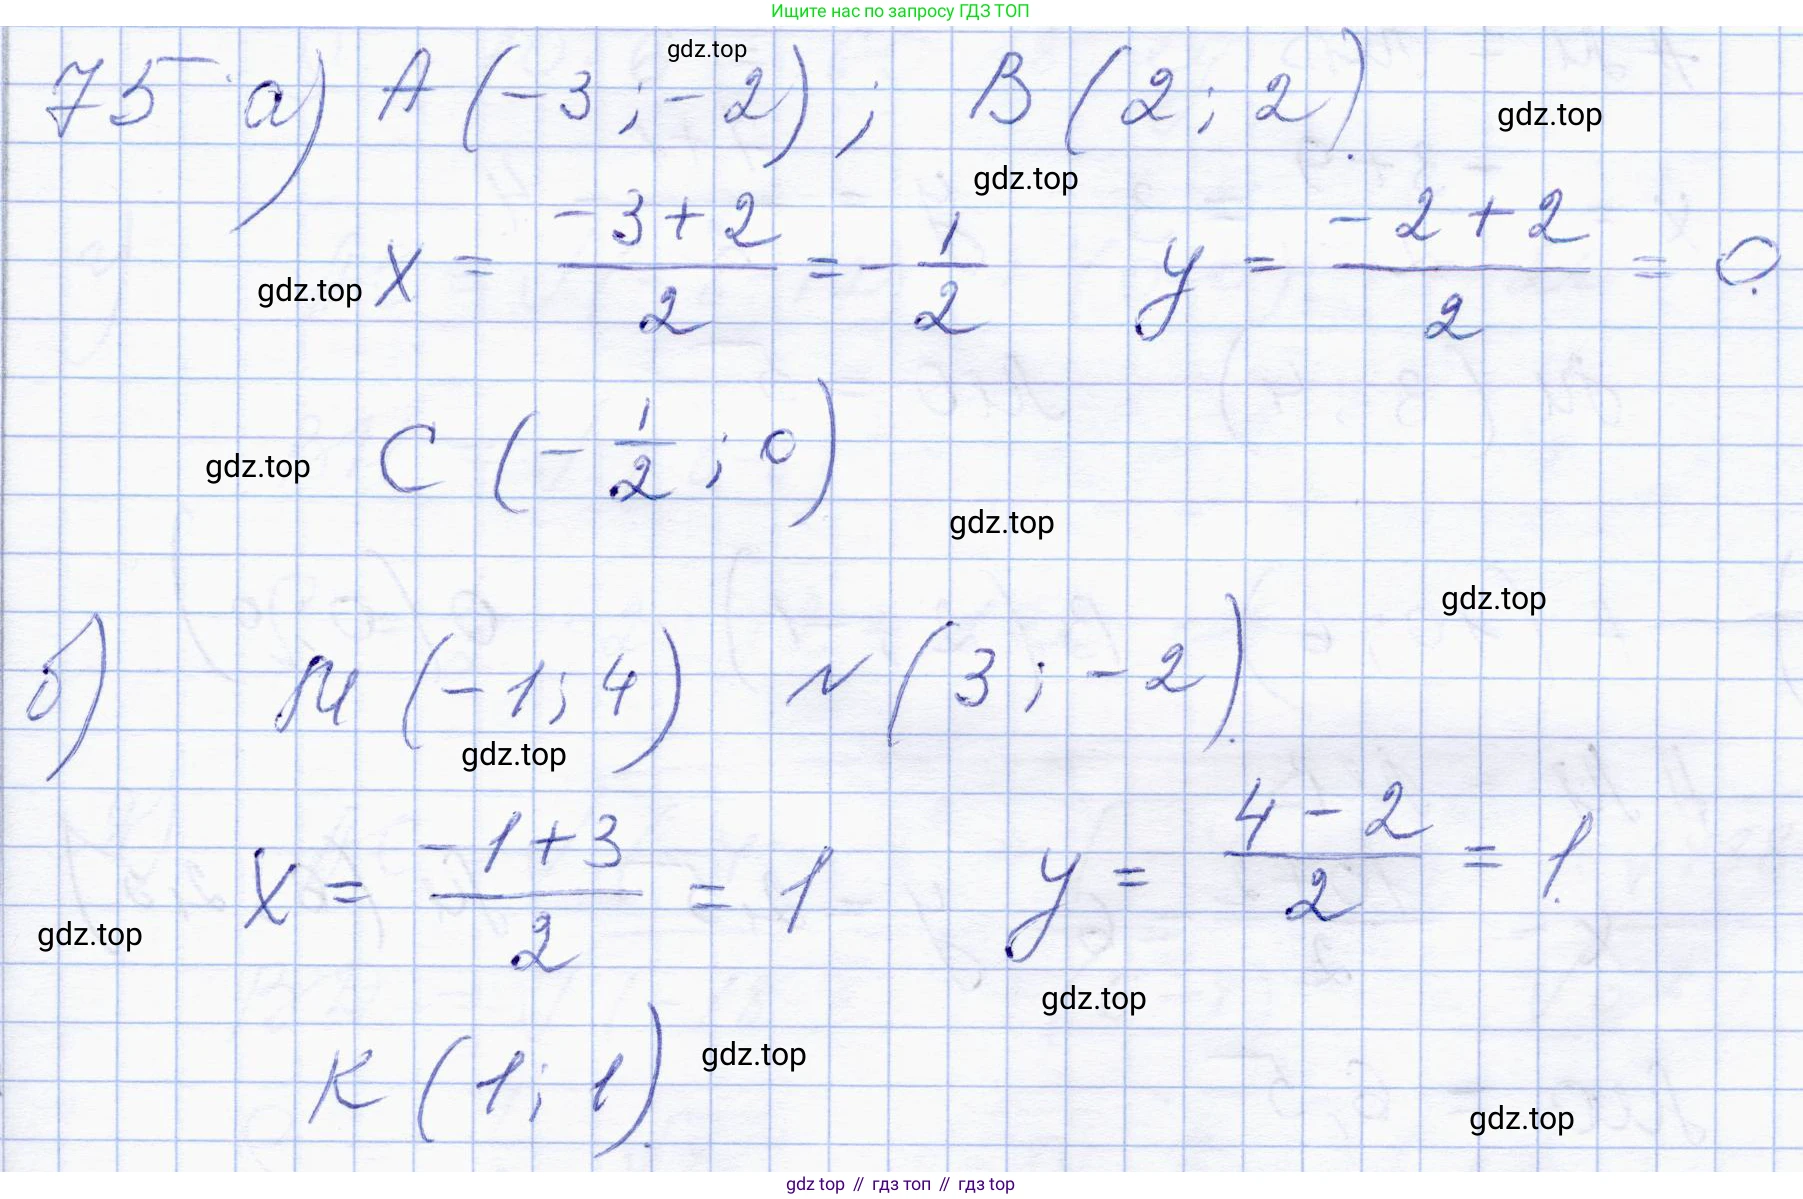 Ищите нас по запросу ГДЗ ТОП
gdz.top
75 а) A (-3; -2); B (2; 2).
gdz.top
gdz.top
x = (-3+2)/2 = -1/2 y = (-2+2)/2 = 0.
gdz.top
C (-1/2; 0)
gdz.top
gdz.top
gdz.top
б) M (-1; 4) N (3; -2).
gdz.top
x = (-1+3)/2 = 1 y = (4-2)/2 = 1.
gdz.top
gdz.top
K (1; 1).
gdz.top
gdz.top
gdz top // гдз топ // gdz top